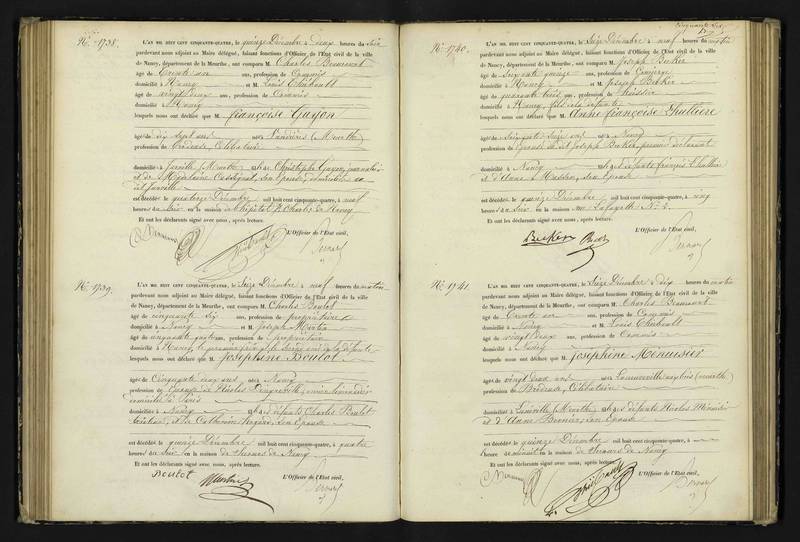 No. 1738.
L'AN MIL HUIT CENT CINQUANTE-QUATRE, le quinze Décembre à Deux heures du soir
pardevant nous adjoint au Maire délégué, faisant fonctions d'Officier de l'Etat civil de la ville
de Nancy, département de la Meurthe, ont comparu M. Charles
âgé de Trente un ans, profession de Commis
domicilié à Nancy et Louis Thiébault
âgé de vingt deux ans, profession de Commis
domicilié à Nancy
lesquels nous ont déclaré que M. françoise Guyon
âgée de dix sept ans née à Vandières (Meurthe)
profession de Brodeuse, Célibataire
domicilié à Joinville (Meurthe) Christophe Guyon, journalier
et de son Epouse, domiciliés
est décédée le quatorze Décembre mil huit cent cinquante-quatre, à neuf
heures du Soir en la maison de l'hôpital St Charles de Nancy
Et ont les déclarants signé avec nous, après lecture.
L'Officier de l'Etat civil,
No. 1739.
L'AN MIL HUIT CENT CINQUANTE-QUATRE, le Seize Décembre à neuf heures du matin
pardevant nous adjoint au Maire délégué, faisant fonctions d'Officier de l'Etat civil de la ville
de Nancy, département de la Meurthe, ont comparu M. Charles Boulot
âgé de cinquante Six ans, profession de propriétaire
domicilié à Nancy et Joseph Martin
âgé de cinquante ans, profession de propriétaire
domicilié à Nancy, le premier frère de la défunte
lesquels nous ont déclaré que M. Joséphine Boulot
âgée de Cinquante cinq ans née à Nancy
profession de Epouse de Nicolas
domicilié à Paris
domiciliée à Nancy défunts Charles Boulot
et de Catherine son Epouse
est décédée le quinze Décembre mil huit cent cinquante-quatre, à quatre
heures du Soir en la maison de Secours de Nancy
Et ont les déclarants signé avec nous, après lecture.
L'Officier de l'Etat civil,
Boulot Martin
No. 1740.
L'AN MIL HUIT CENT CINQUANTE-QUATRE, le Seize Décembre à neuf heures du matin
pardevant nous adjoint au Maire délégué, faisant fonctions d'Officier de l'Etat civil de la ville
de Nancy, département de la Meurthe, ont comparu M. Joseph Beker
âgé de Soixante quinze ans, profession de Concierge
domicilié à Nancy et Joseph Beker
âgé de quarante trois ans, profession de
domicilié à Nancy, fils de la défunte
lesquels nous ont déclaré que M. Anne françoise Thuillière
âgée de Soixante Seize ans née à Nancy
profession de Epouse du dit Joseph Beker, premier déclarant
domiciliée à Nancy défunts françois Thuillière
et d'Anne Masson, son Epouse
est décédée le quinze Décembre mil huit cent cinquante-quatre, à cinq
heures du Soir en la maison rue Lafayette No. 5
Et ont les déclarants signé avec nous, après lecture.
L'Officier de l'Etat civil,
Becker
No. 1741.
L'AN MIL HUIT CENT CINQUANTE-QUATRE, le Seize Décembre à Dix heures du matin
pardevant nous adjoint au Maire délégué, faisant fonctions d'Officier de l'Etat civil de la ville
de Nancy, département de la Meurthe, ont comparu M. Charles
âgé de Trente un ans, profession de Commis
domicilié à Nancy et Louis Thiébault
âgé de vingt deux ans, profession de Commis
domicilié à Nancy
lesquels nous ont déclaré que M. Joséphine Menuisier
âgée de vingt deux ans née à Laneuveville (Meurthe)
profession de Brodeuse, Célibataire
domiciliée à Lunéville (Meurthe) défunts Nicolas Menuisier
et d'Anne son Epouse
est décédée le quinze Décembre mil huit cent cinquante-quatre, à
heures de minuit en la maison de Secours de Nancy
Et ont les déclarants signé avec nous, après lecture.
L'Officier de l'Etat civil,